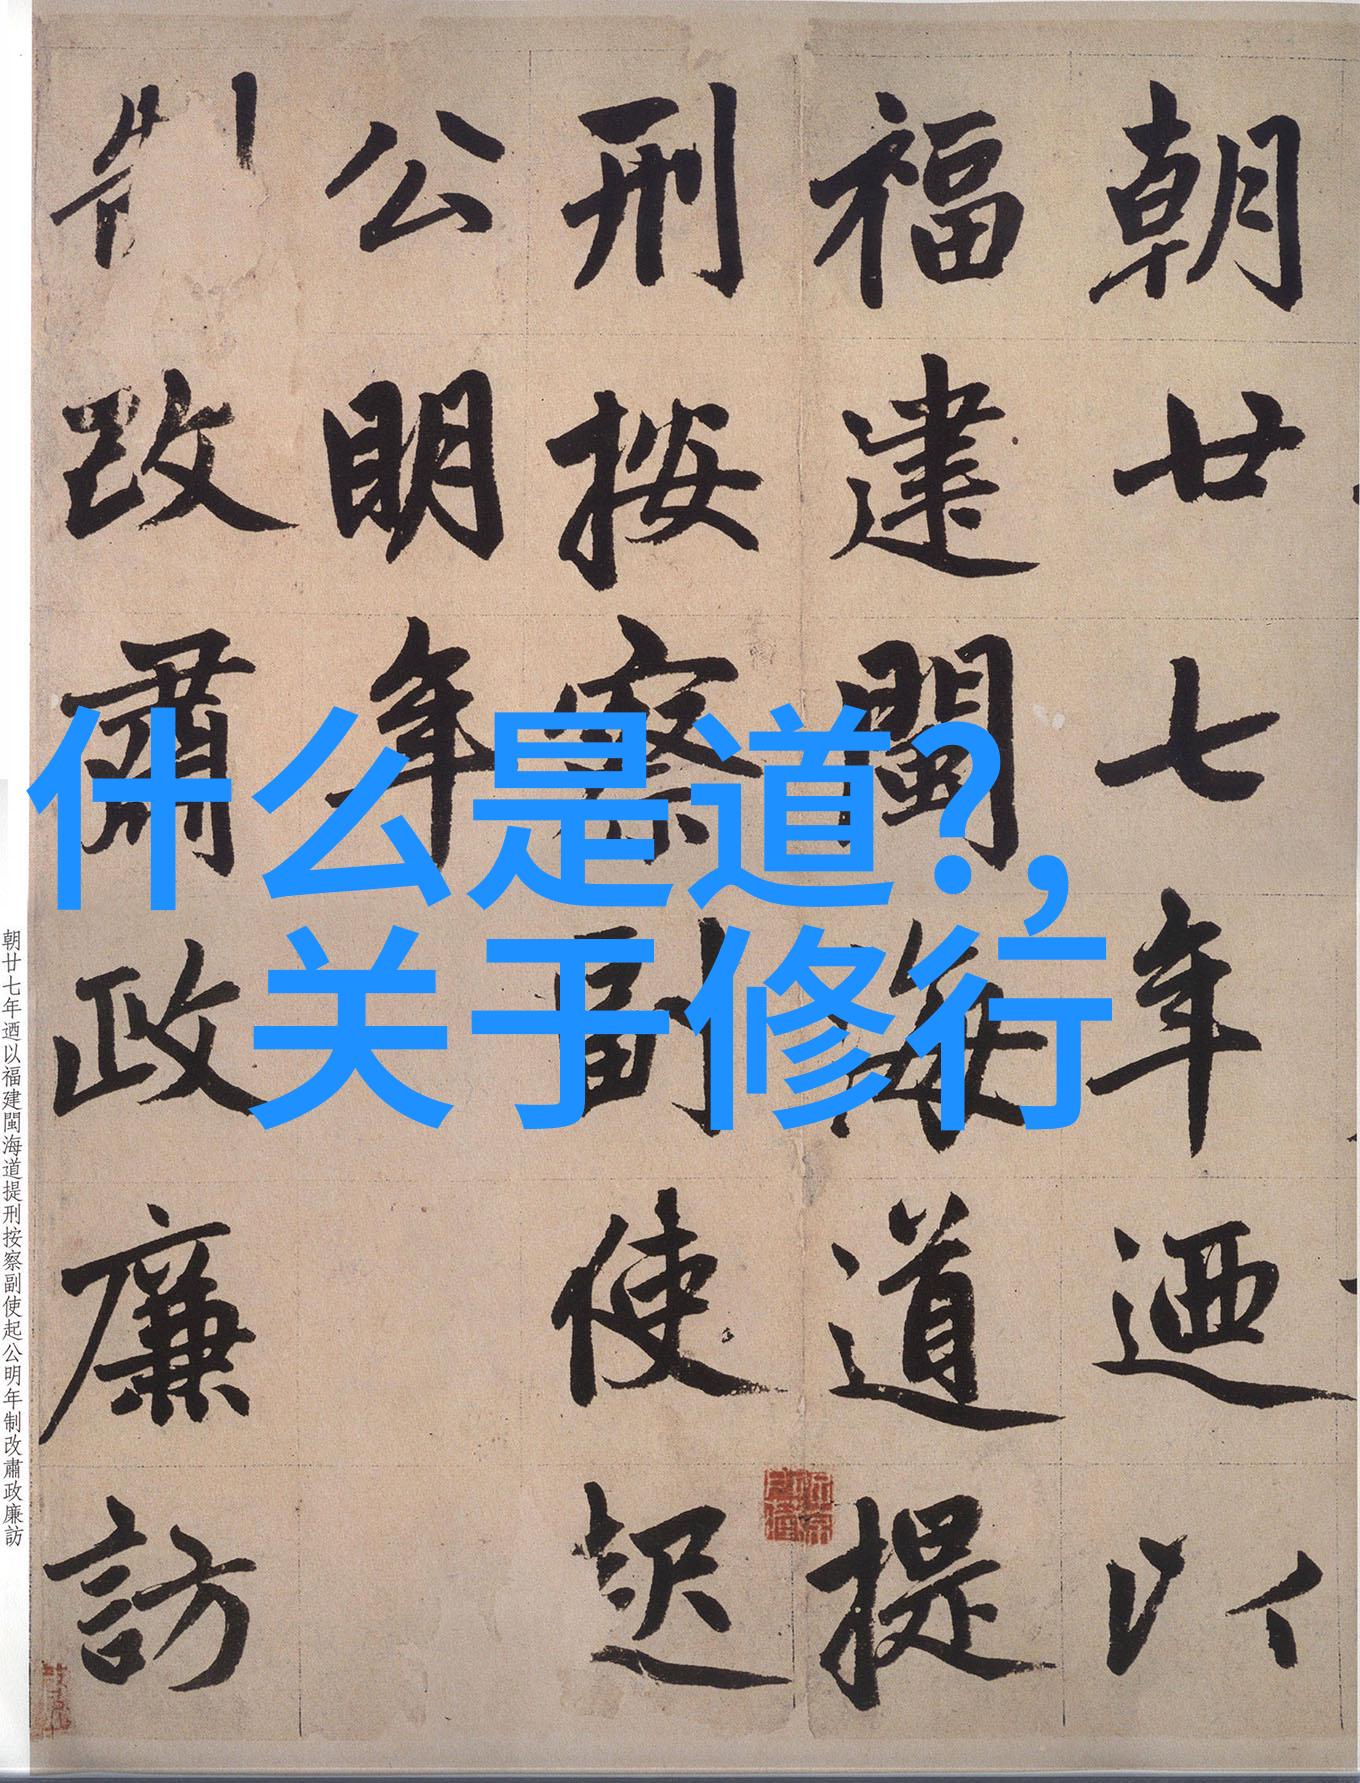 什么是道?,
关于修行
朝廿七年迺以
福建閩海道提
刑按察副使起
公明年
制改肅政廉訪
朝廿七年迺以福建閩海道提刑按察副使起公明年制改肅政廉訪